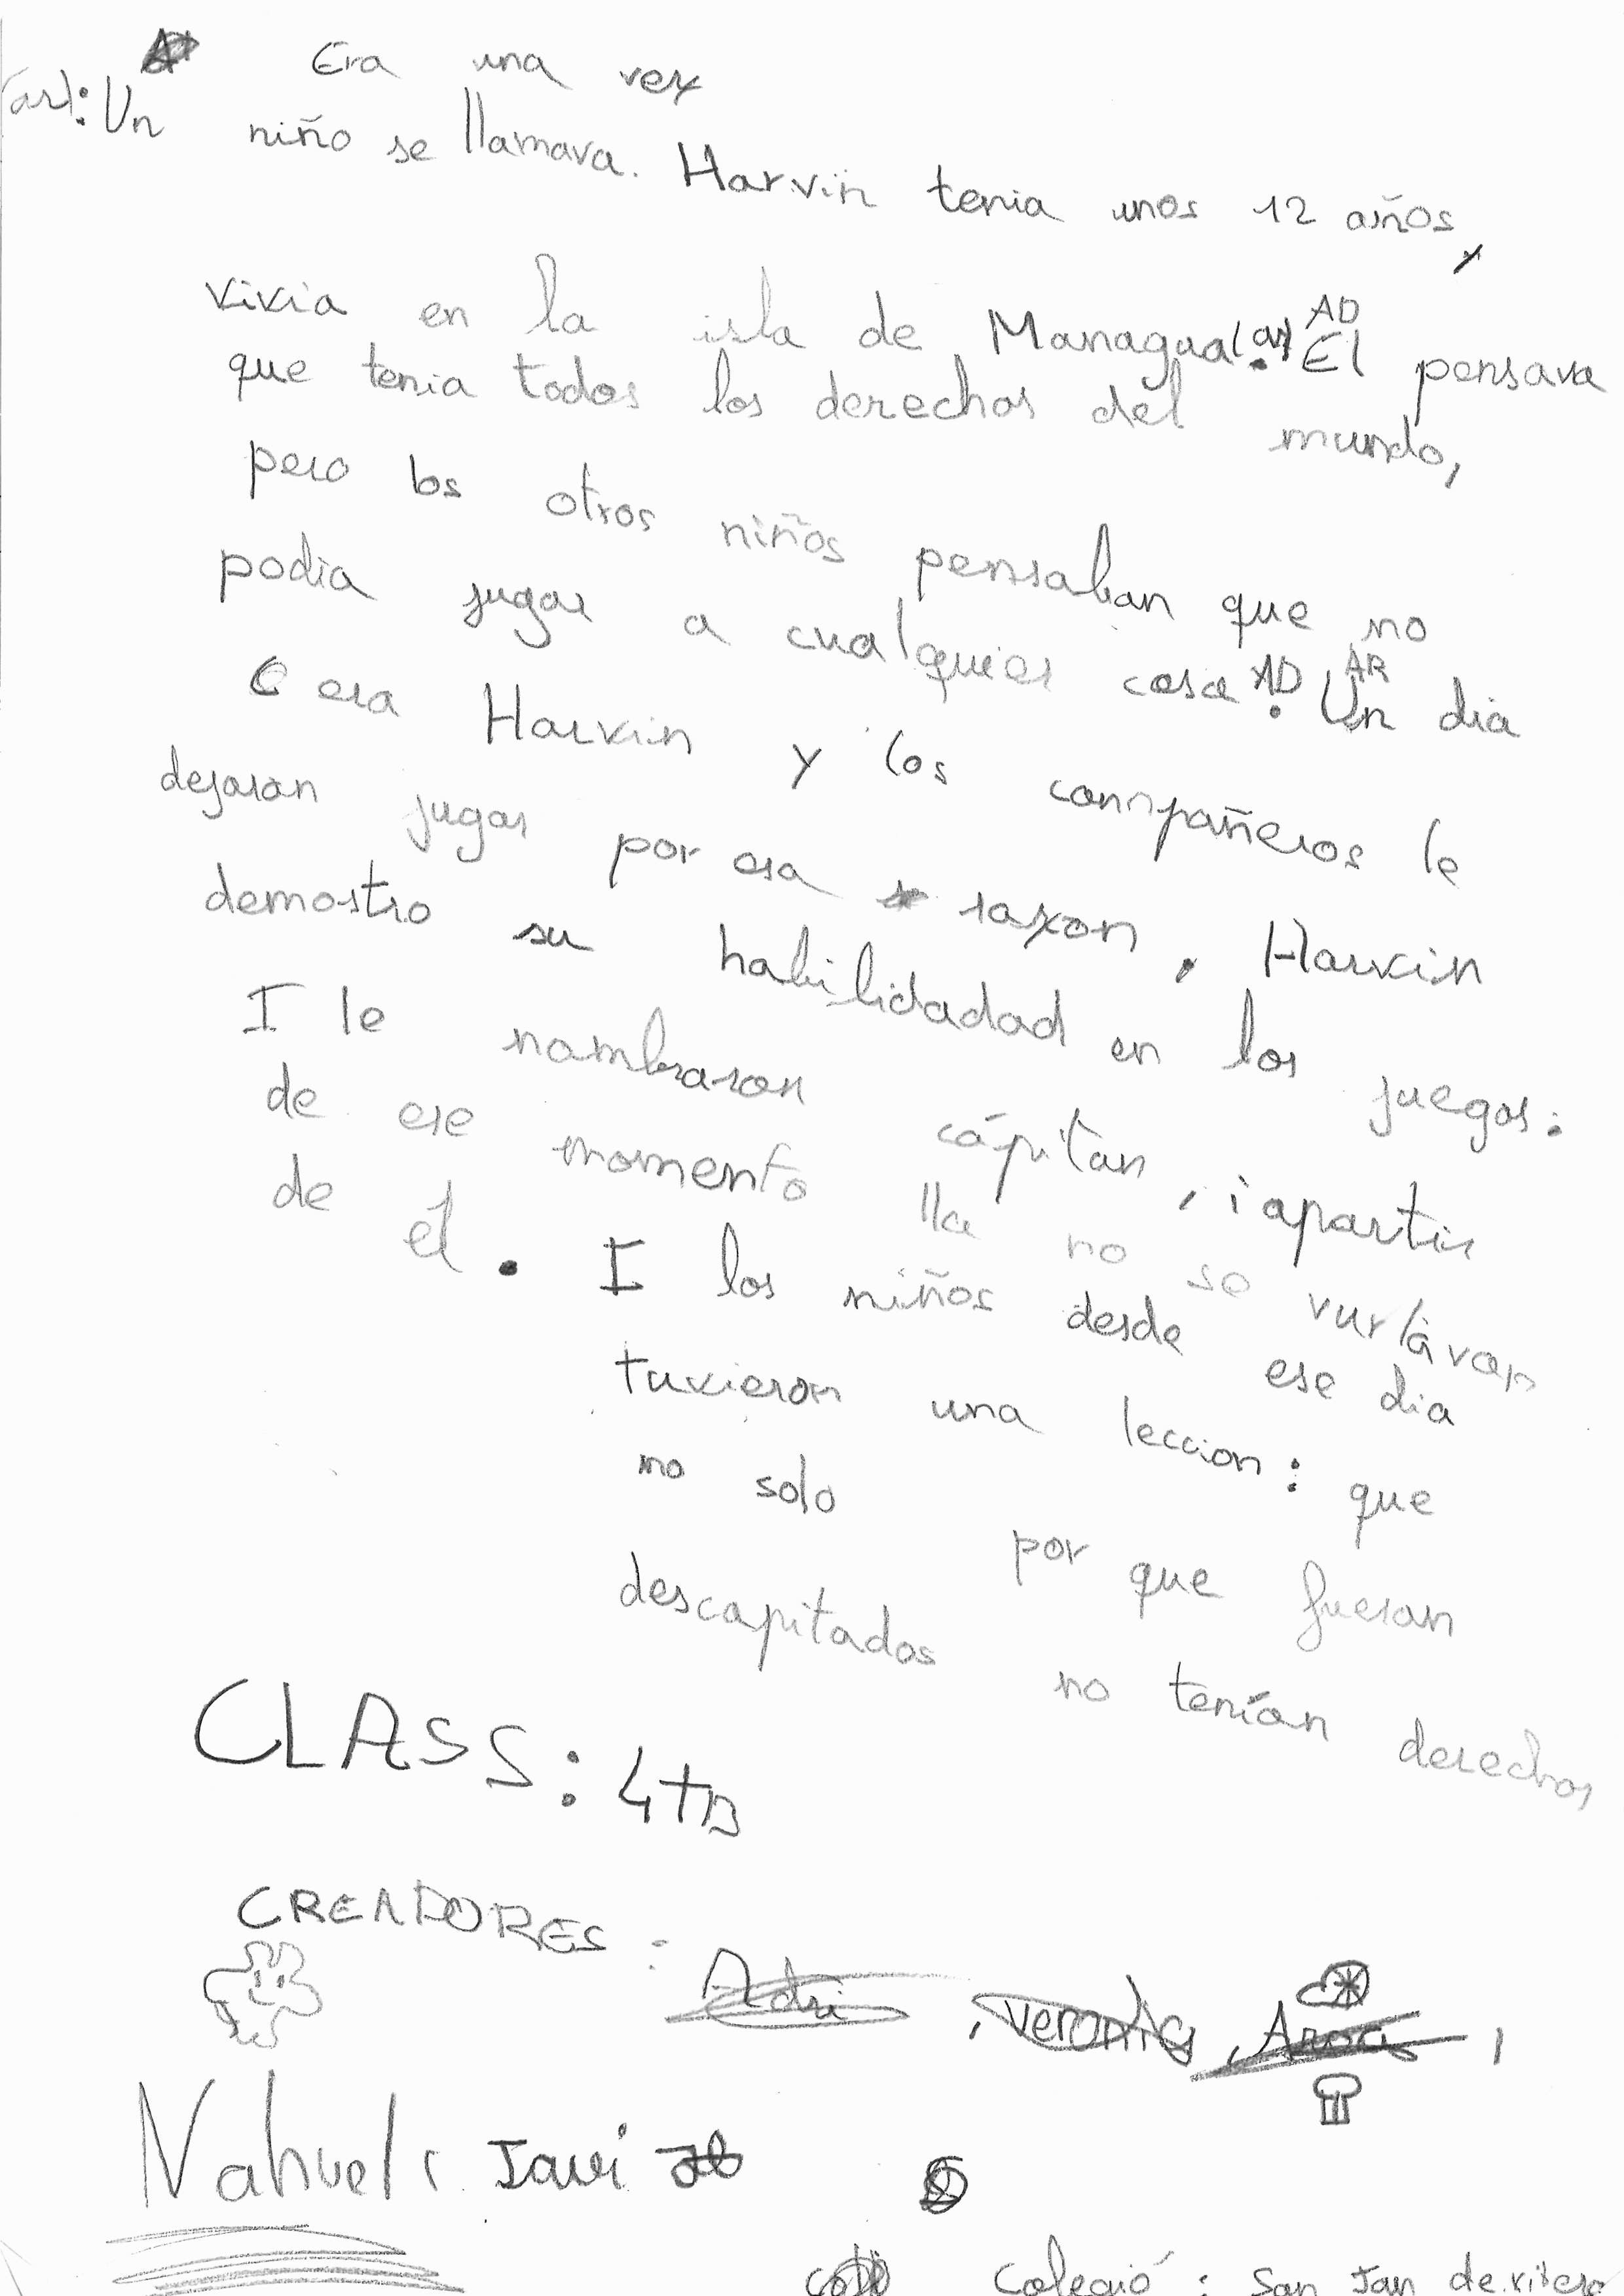 Era una vez
(ar): Un niño se llamava. Harvin tenia unos 12 años,
vivia en la isla de Managua(ar). AD El pensava
que tenia todos los derechos del mundo,
pero los otros niños pensaban que no
podia jugar a cualquier cosa AD. AR Un dia
era Harvin y los compañeros le
dejaran jugar por esa razon, Harvin
demostro su habilidadad en los juegos:
I le nombraron cápitan, i apartir
de ese momento lla no se vurlávan
de él. I los niños desde ese dia
tuvieron una leccion: que
no solo por que fueran
descapitados no tenían derechos
CLASS: 4tB
CREADORES:
Adri, Veronica, Aroa,
Nahuel, Javi
Colegió: San Jan de ribera